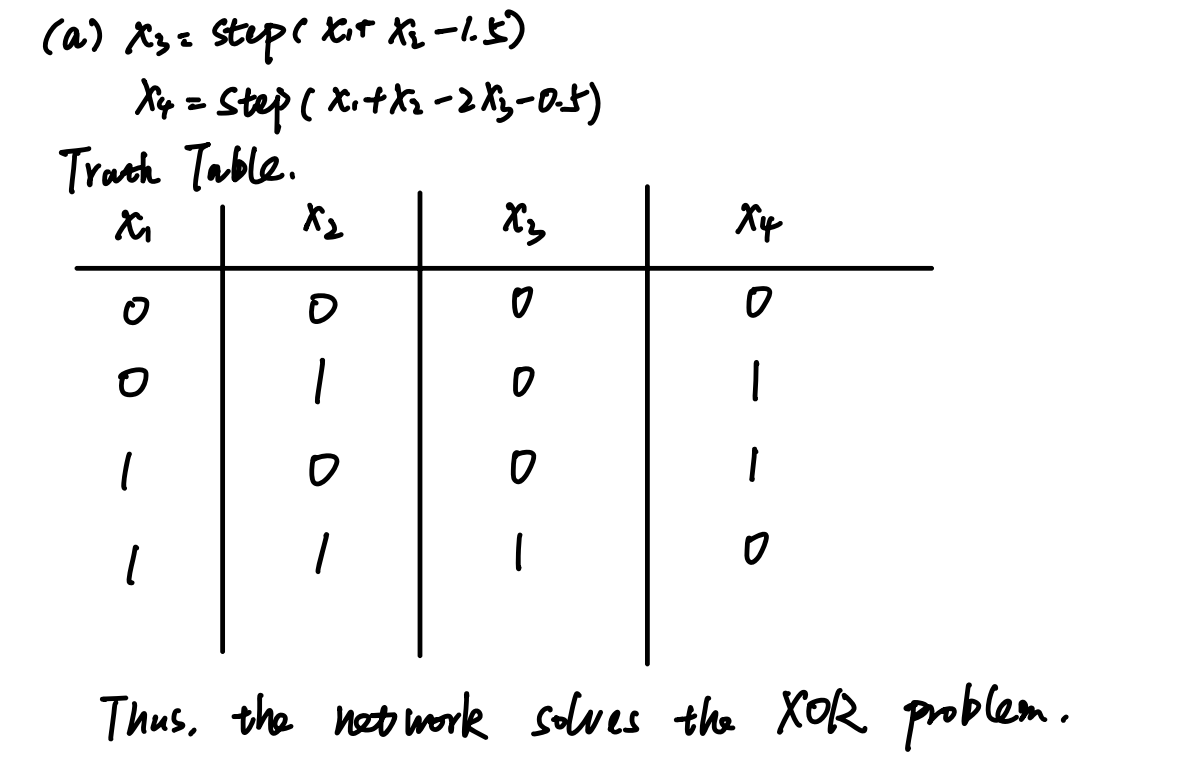 (a) x₃ = step( x₁+ x₂ -1.5)
x₄ = step( x₁+x₂ -2x₃-0.5)
Truth Table.
x₁ x₂ x₃ x₄
0 0 0 0
0 1 0 1
1 0 0 1
1 1 1 0
Thus, the network solves the XOR problem.